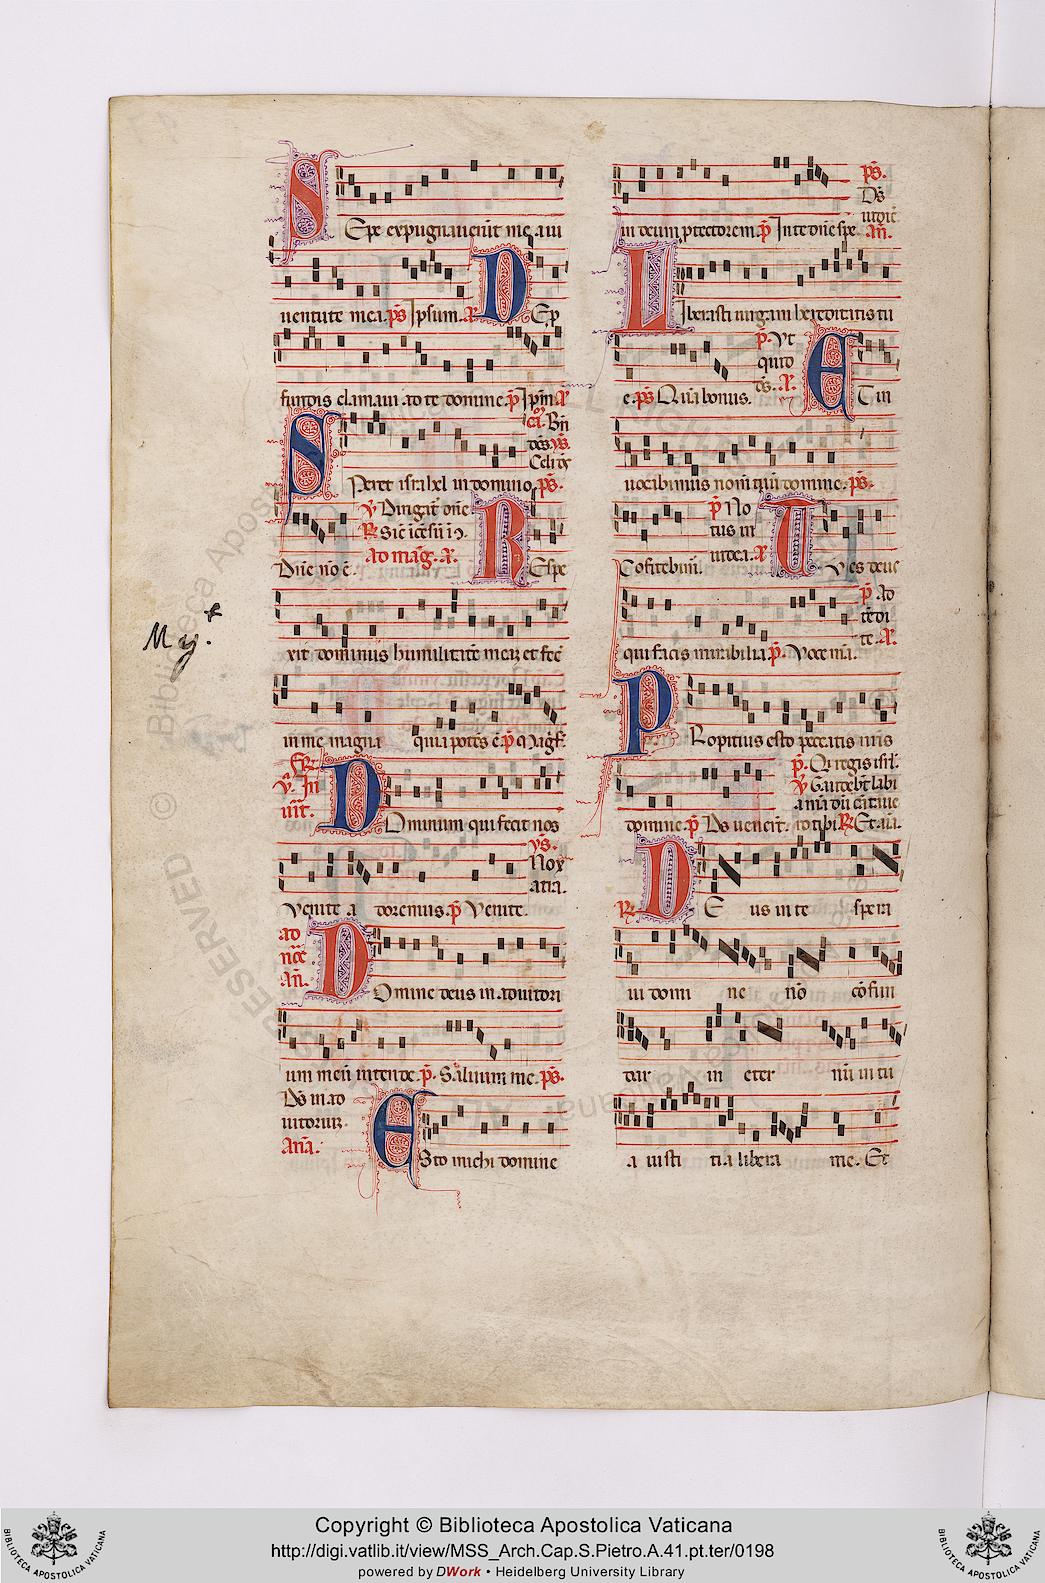 Sepe expugnaverũt me a iu
ventute mea. p̃s Ipsum. a̅. De p
fundis clamaui ad te domine. p̃ Ip̃m a̅
Speret israhel in domino. p̃s.
Dñe nõ ẽ.
℣ Dirigat̃ oñe
Ad mag̃. a̅. Respe
xit dominus humilitatẽ meã et fec̃
My.
in me magna quia potẽs ẽ. p̃ Magf̃.
Dominum qui fecit nos
Venite adoremus. p̃ Venite.
Nox
atra.
ad
nc̃e
añ. Domine deus in adiutori
um meũ intende. p̃. Saluum me. p̃s.
Ds̃ in ad
iutoriũ.
Anã. Esto michi domine
in deum ptectorem. p̃ In te dñe spe. añ.
p̃s.
Ds̃
iudic̃
Liberasti uirgam hereditatis tu
e. p̃s Quã bonus.
p̃. Vt
quid
ds̃. a̅. Et in
uocibimus nomẽ tuũ domine. p̃s.
Cõfitebim̃.
p̃ No
tus in
iudea. a̅ Tu es deus
qui facis mirabilia. p̃. Voce mã.
p̃ Ad
te. a̅.
Propitius esto peccatis nr̃is
domine. p̃ Ds̃ uenert̃.
p̃. Qui regis isrl̃.
℣ Gaudebt̃ labi
a mã dũ cãtaue
ro tibi ℟ Et aĩa.
℟ Deus in te spera
ui domi ne nõ cõfun
dar in eter nũ in tu
a iusti tia libera me. Et
Copyright © Biblioteca Apostolica Vaticana
http://digi.vatlib.it/view/MSS_Arch.Cap.S.Pietro.A.41.pt.ter/0198
powered by DWork • Heidelberg University Library
BIBLIOTECA APOSTOLICA VATICANA
BIBLIOTECA APOSTOLICA VATICANA